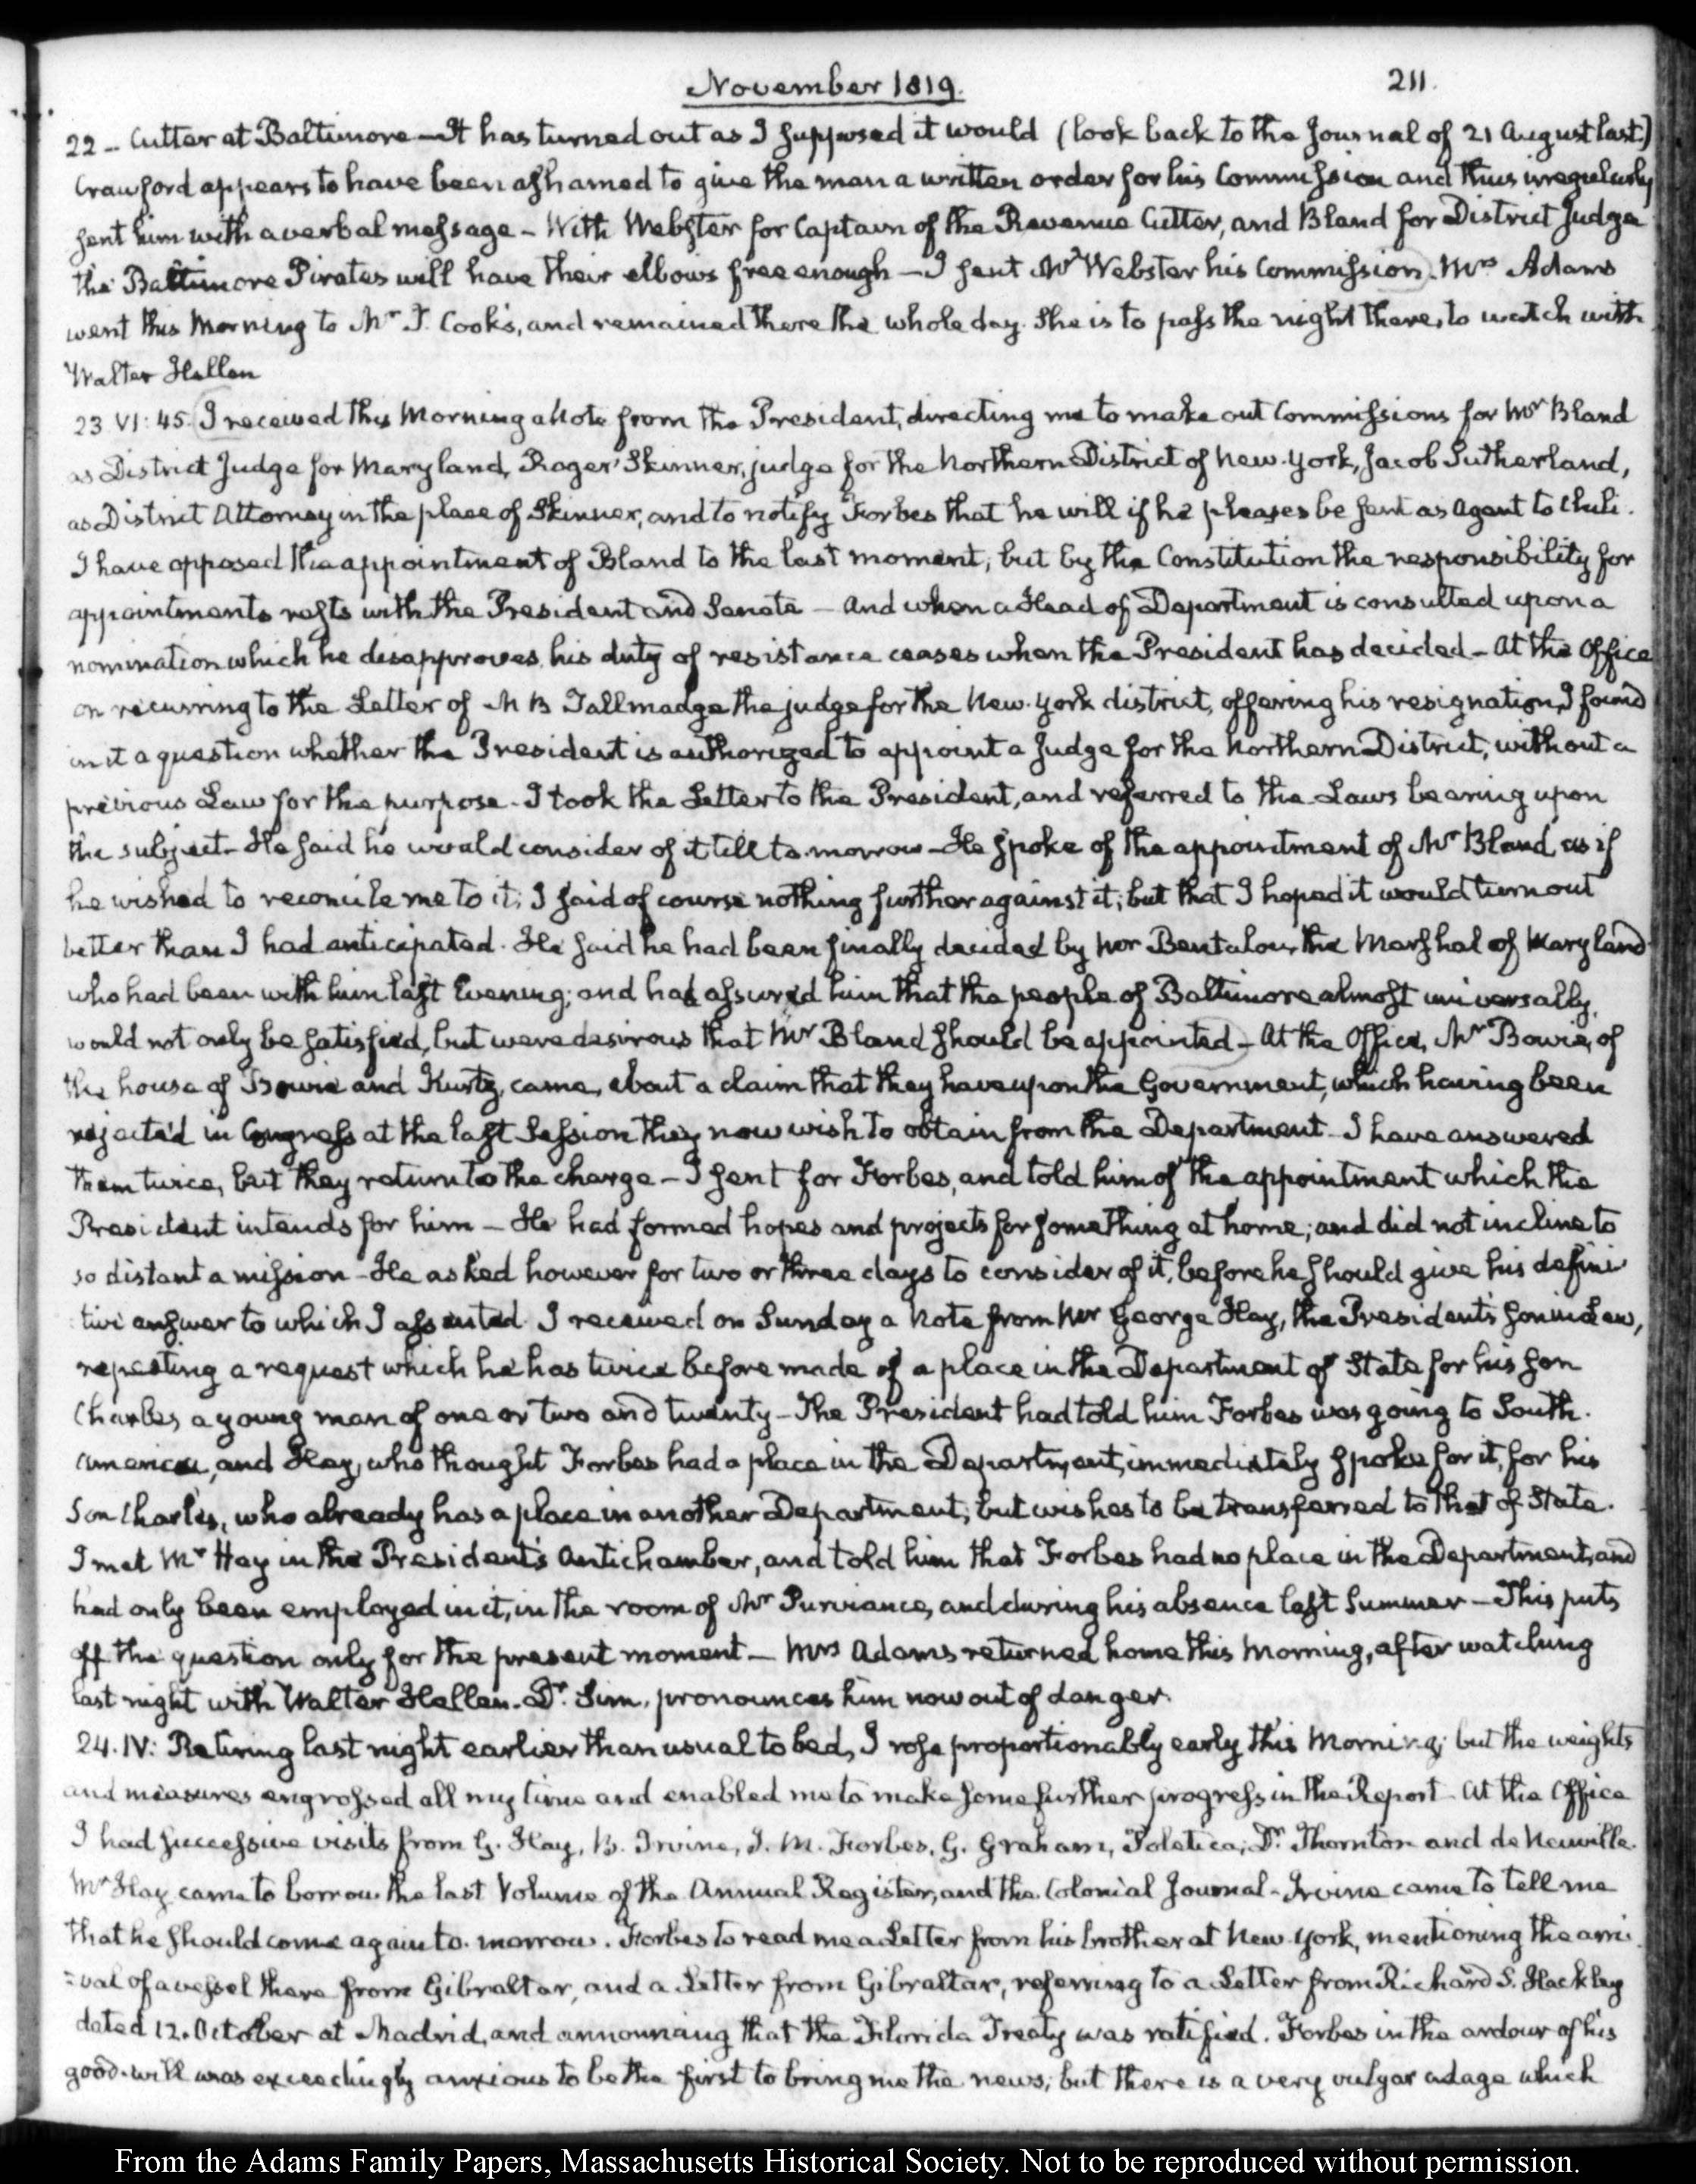 November 1819.
211.
22 – Cutter at Baltimore — It has turned out as I supposed it would (look back to the Journal of 21 August last.)
Crawford appears to have been ashamed to give the man a written order for his Commission and thus irregularly
sent him with a verbal message – With Webster for Captain of the Revenue Cutter, and Bland for District Judge
the Baltimore Pirates will have their elbows free enough — I sent Mr Webster his Commission. Mrs Adams
went this Morning to Mr J. Cook's, and remained there the whole day. She is to pass the night there, to watch with
Walter Hellen
23. VI: 45. I received this Morning a Note from the President, directing me to make out Commissions for Mr Bland
as District Judge for Maryland, Roger Skinner, judge for the Northern District of New-York, Jacob Sutherland,
as District Attorney in the place of Skinner, and to notify Forbes that he will if he pleases be sent as Agent to Chili.
I have opposed the appointment of Bland to the last moment; but by the Constitution the responsibility for
appointments rests with the President and Senate – And when a Head of Department is consulted upon a
nomination which he disapproves, his duty of resistance ceases when the President has decided – At the Office
on recurring to the Letter of M B Tallmadge the judge for the New-York district, offering his resignation, I found
in it a question whether the President is authorized to appoint a Judge for the Northern District, without a
previous Law for the purpose. I took the Letter to the President, and referred to the Laws bearing upon
the subject – He said he would consider of it till to-morrow – He spoke of the appointment of Mr Bland, as if
he wished to reconcile me to it; I said of course nothing further against it; but that I hoped it would turn out
better than I had anticipated. He said he had been finally decided by Mr Bentalou, the Marshal of Maryland
who had been with him last Evening; and had assured him that the people of Baltimore almost universally,
would not only be satisfied, but were desirous that Mr Bland should be appointed – At the Office, Mr Bowie, of
the house of Bowie and Kurtz, came, about a claim that they have upon the Government, which having been
rejected in Congress at the last Session they now wish to obtain from the Department. I have answered
them twice, but they return to the charge – I sent for Forbes, and told him of the appointment which the
President intends for him – He had formed hopes and projects for something at home; and did not incline to
so distant a mission – He asked however for two or three days to consider of it, before he should give his defini
tive answer to which I assented. I received on Sunday a Note from Mr George Hay, the President's son in Law,
repeating a request which he has twice before made of a place in the Department of State for his son
Charles, a young man of one or two and twenty – The President had told him Forbes was going to South.
America, and Hay, who thought Forbes had a place in the Department, immediately spoke for it, for his
Son Charles, who already has a place in another Department; but wishes to be transferred to that of State.
I met Mr Hay in the President's Antichamber, and told him that Forbes had no place in the Department, and
had only been employed in it, in the room of Mr Purviance, and during his absence last Summer – This puts
off the question only for the present moment – Mrs Adams returned home this Morning, after watching
last night with Walter Hellen. Dr. Sim, pronounces him now out of danger.
24. IV: Retiring last night earlier than usual to bed, I rose proportionably early this Morning; but the weights
and measures engrossed all my time and enabled me to make some further progress in the Report. At the Office
I had successive visits from G. Hay, B. Irvine, J. M. Forbes, G. Graham, Poletica, Dr. Thornton and de Neuville.
Mr Hay came to borrow the last Volume of the Annual Register, and the Colonial Journal – Irvine came to tell me
that he should come again to-morrow. Forbes to read me a Letter from his brother at New-York, mentioning the arri-
=val of a vessel there from Gibraltar, and a Letter from Gibraltar, referring to a Letter from Richard S. Hackley
dated 12. October at Madrid, and announcing that the Florida Treaty was ratified. Forbes in the ardour of his
good-will was exceedingly anxious to be the first to bring me the news; but there is a very vulgar adage which
From the Adams Family Papers, Massachusetts Historical Society. Not to be reproduced without permission.